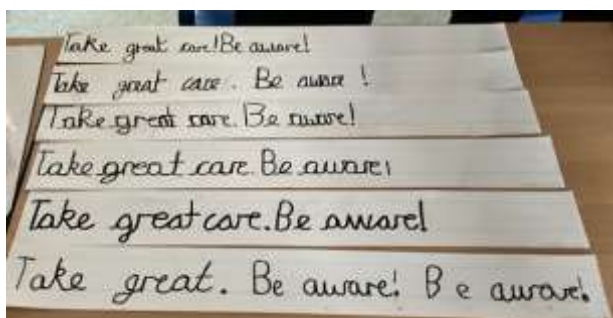 Take great care! Be aware!
Take great care. Be aware!
Take great care. Be aware!
Take great care. Be aware!
Take great care. Be aware!
Take great. Be aware! Be aware!